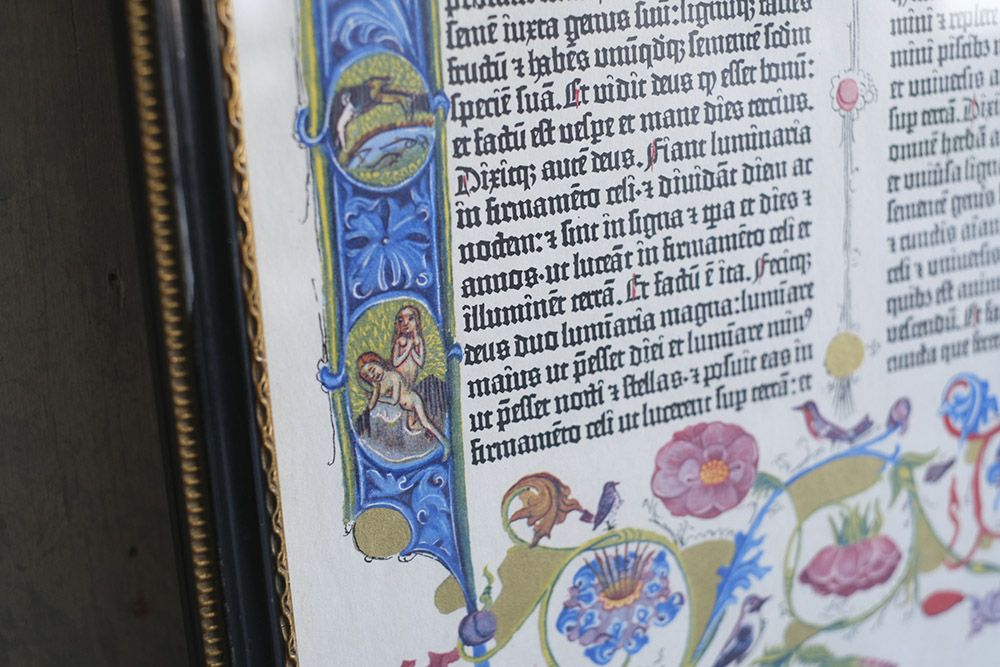 semē iuxta genus suū: lignūqꝫ faciēs
fructū ⁊ habēs unūqdqꝫ semētē scdm
speciē suā. Et vidit deus ꝙ esset bonū:
et factū est vespe et mane dies tercius.
Dixitqꝫ autē deus. Fiant luminaria
in firmamēto celi · ⁊ dividāt diem ac
noctem: ⁊ sint in signa ⁊ tꝑa et dies ⁊
annos · ut luceāt in firmamēto celi et
illuminēt terrā. Et factū ē ita. Fecitqꝫ
deus duo lumīaria magna: lumīare
maius ut p̄esset diei et lumīare minꝰ
ut p̄esset nocti ⁊ stellas · ⁊ posuit eas in
firmamēto celi ut lucerent sup terrā: et
mini ⁊ replete
mini piscibꝫ m
et universis a
sup terrā. Dixi
omnē herbā a
et univ̄sa lign
semētē genis
⁊ cunctis aian
celi ⁊ universis
quibꝫ est anim
vescendū. Et
cuncta que fecer